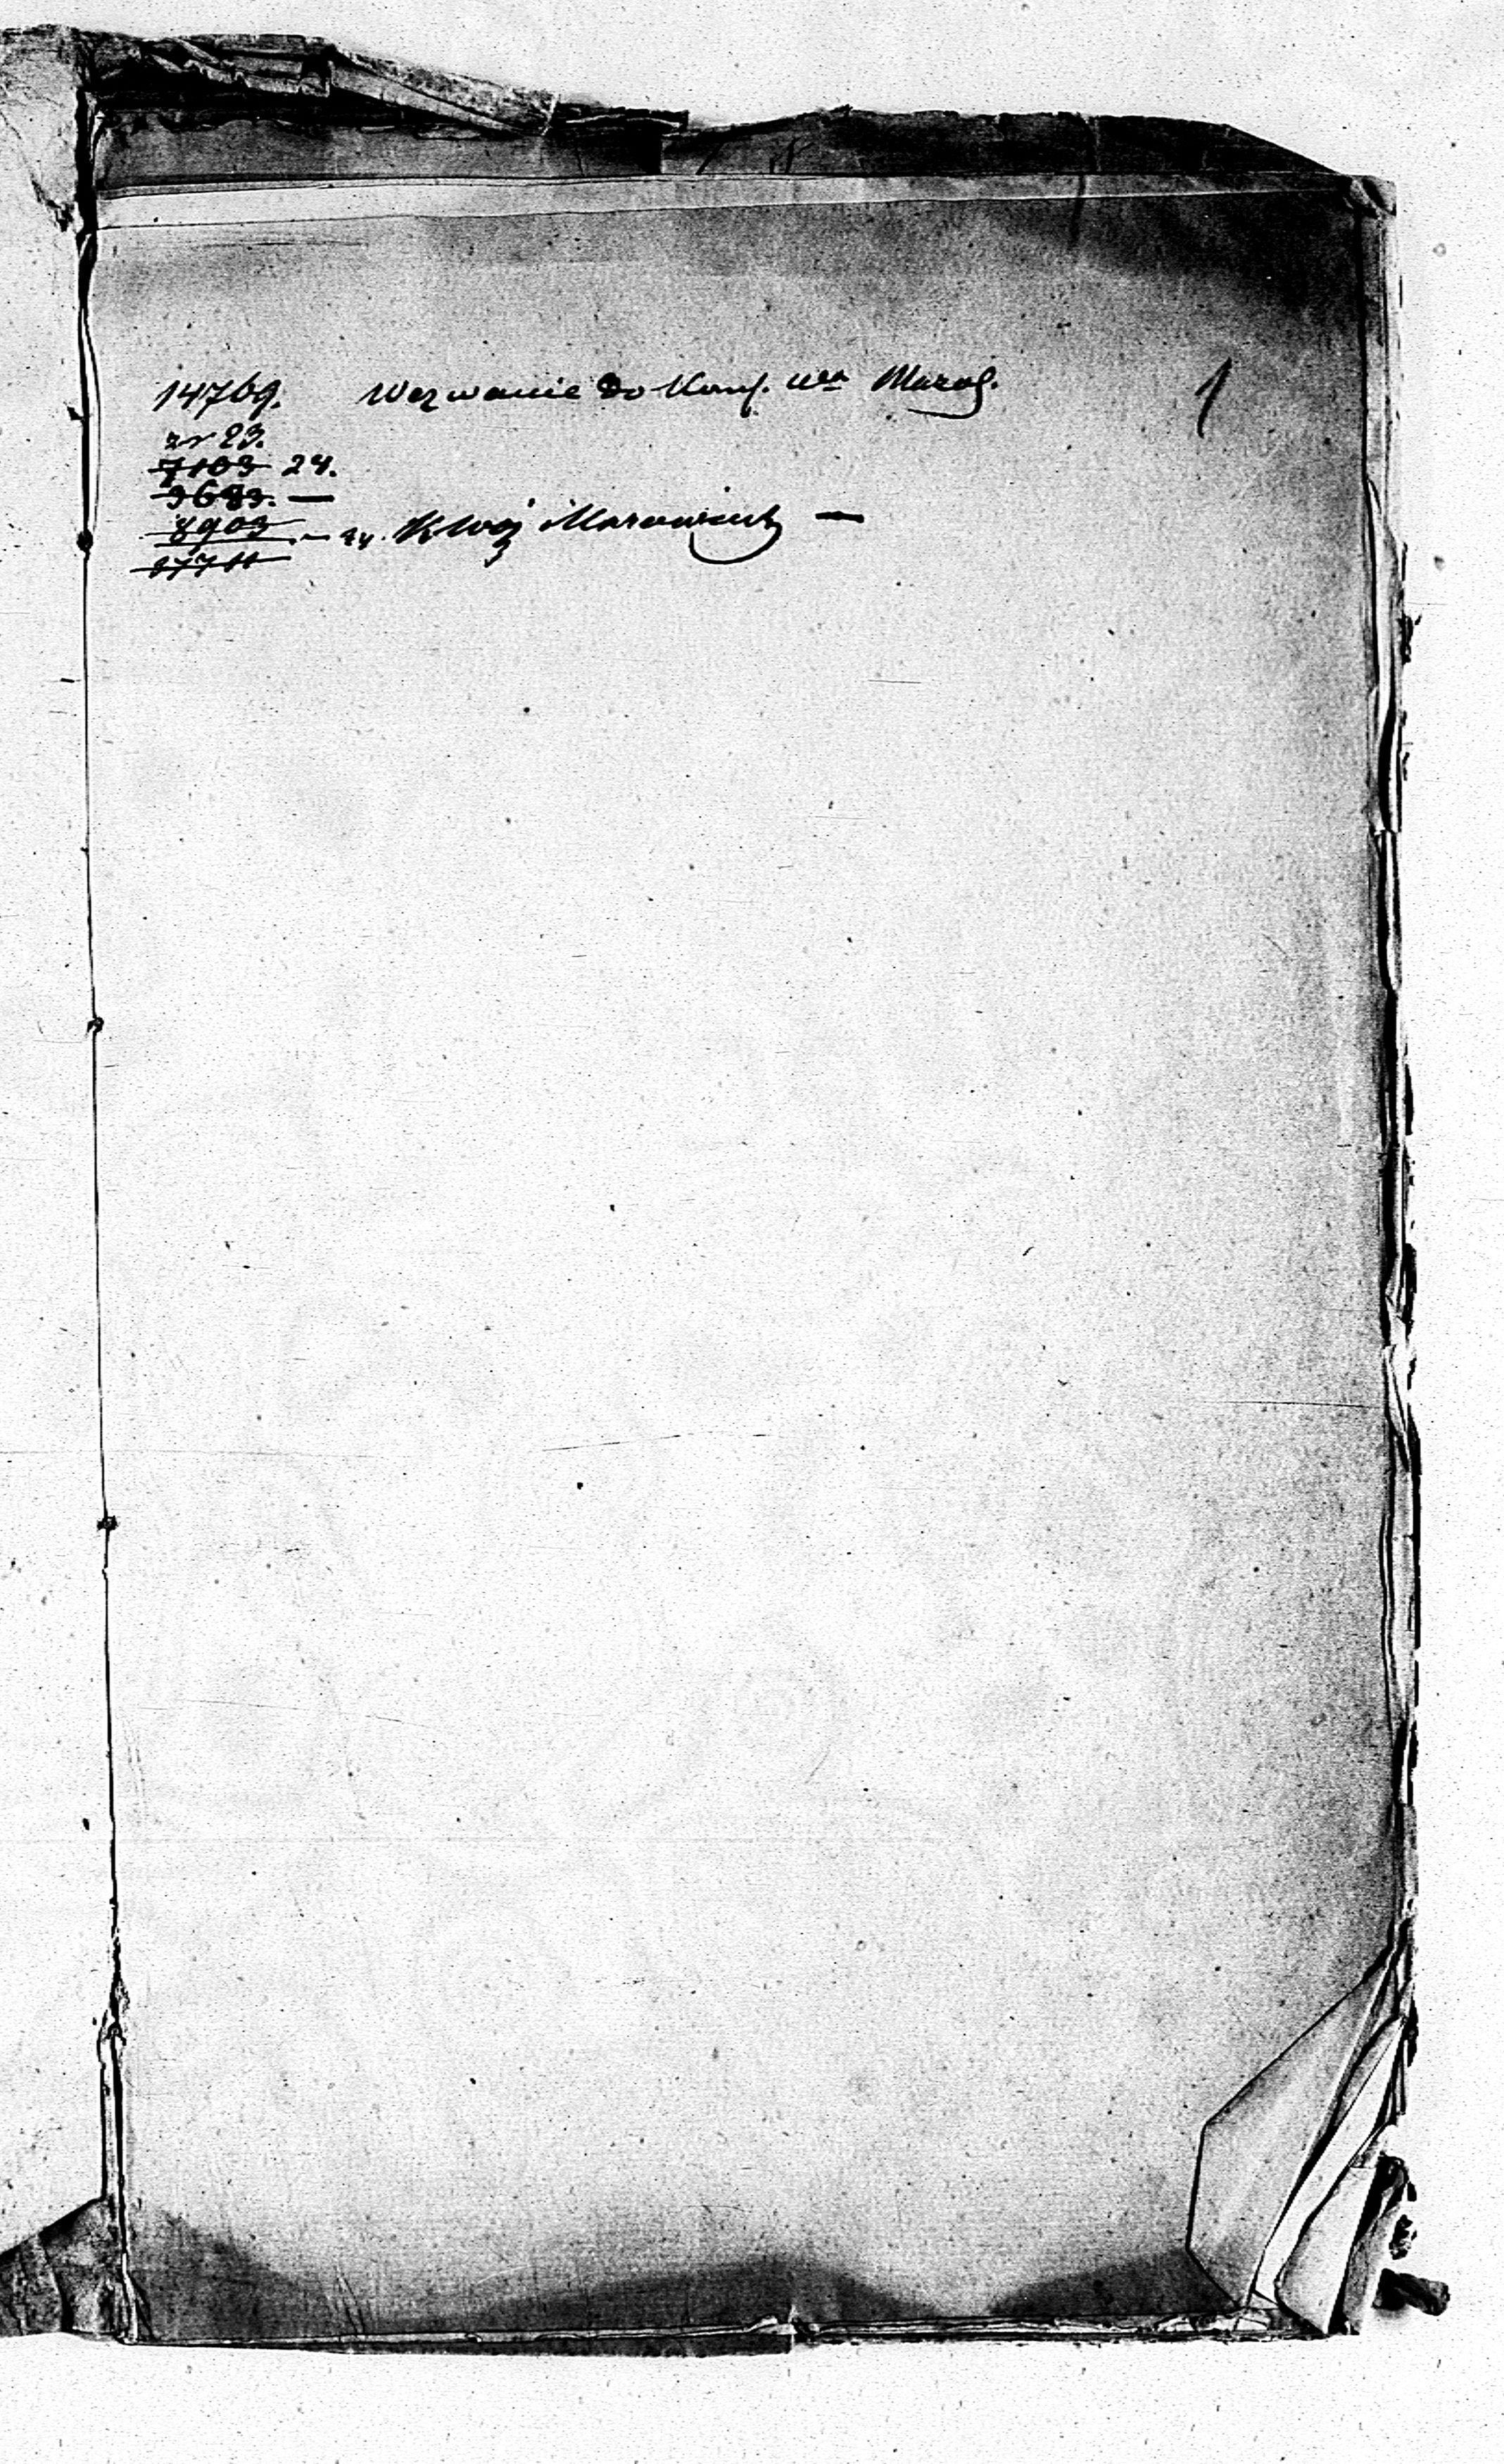 14769. Wezwanie do Kom. Wa Mazow.
1
zr 23.
7103 24.
9683. —
8903 — zy. K Woj Mazowieck —
17711